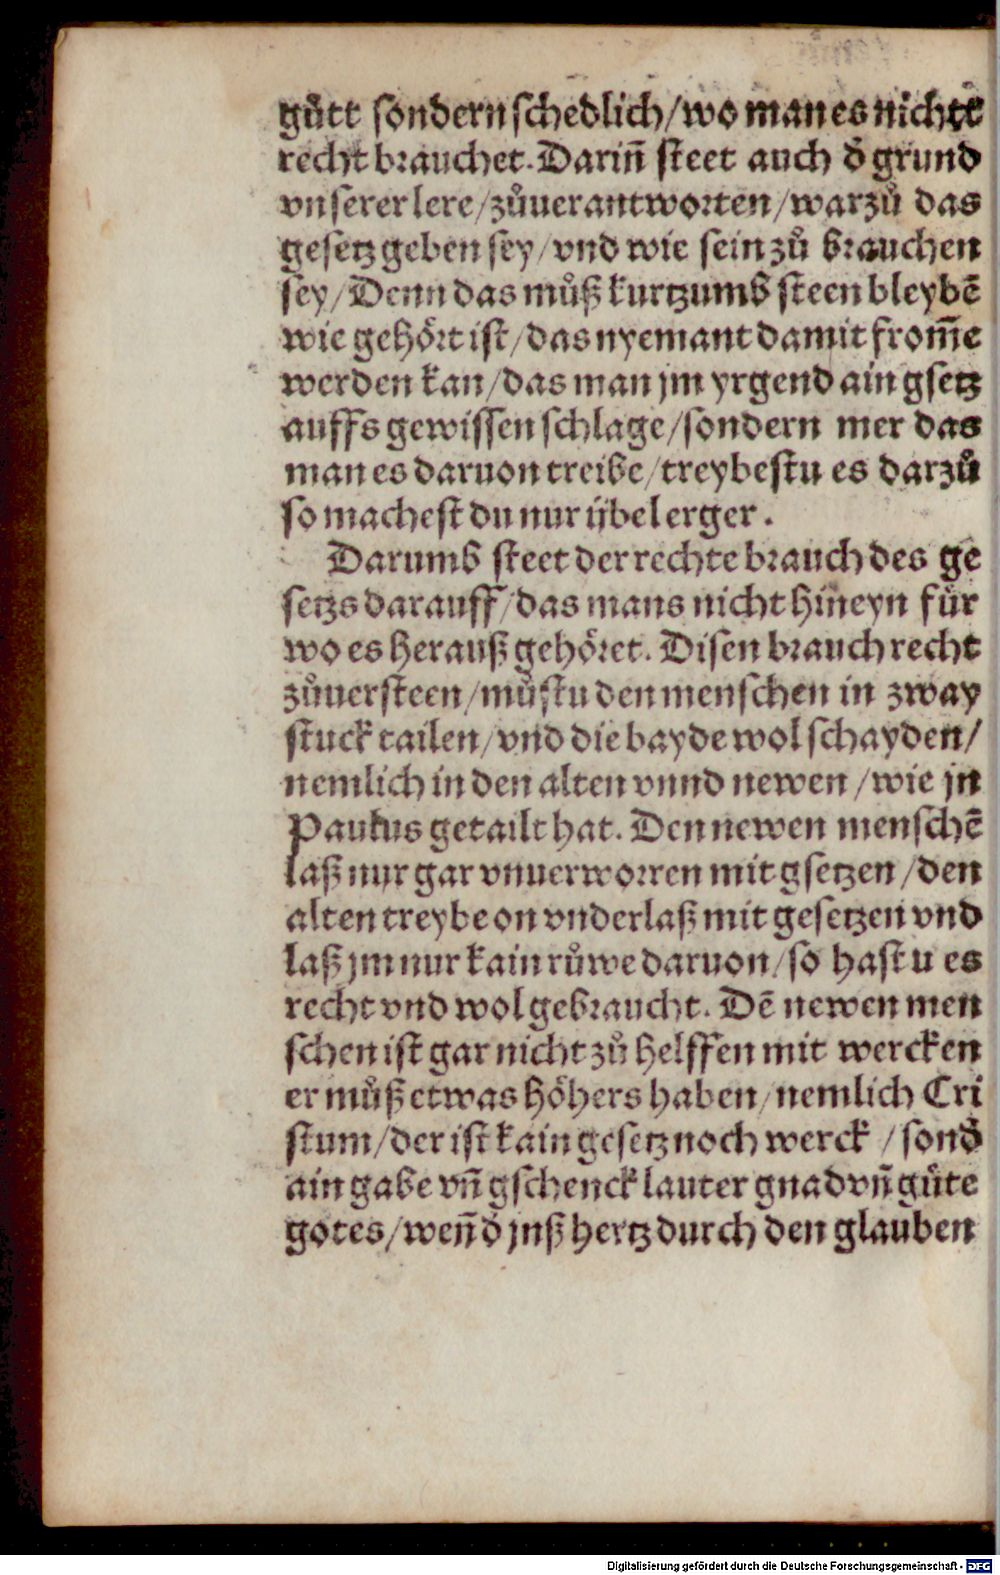 gůtt sondern schedlich/wo man es nicht
recht brauchet. Dariñ steet auch d̕ grund
vnserer lere/zůuerantworten/warzů das
gesetz geben sey/vnd wie sein zů brauchen
sey/Denn das můß kurtzumb steen bleybē
wie gehört ist/das nyemant damit from̄e
werden kan/das man jm yrgend ain gsetz
auffs gewissen schlage/sondern mer das
man es daruon treibe/treybestu es darzů
so machest du nur übel erger.
Darumb steet der rechte brauch des ge
setzs darauff/das mans nicht hineyn für
wo es herauß gehöret. Disen brauch recht
zůuersteen/můstu den menschen in zway
stuck tailen/vnd die bayde wol schayden/
nemlich in den alten vnnd newen/wie jn
Paulus getailt hat. Den newen menschē
laß nur gar vnuerworren mit gsetzen/den
alten treybe on vnderlaß mit gesetzen vnd
laß jm nur kain růwe daruon/so hastu es
recht vnd wol gebraucht. Dē newen men
schen ist gar nicht zů helffen mit wercken
er můß etwas höhers haben/nemlich Cri
stum/der ist kain gesetz noch werck/sond̕
ain gabe vñ gschenck lauter gnad vñ güte
gotes/weñ d̕ jnß hertz durch den glauben
Digitalisierung gefördert durch die Deutsche Forschungsgemeinschaft - DFG